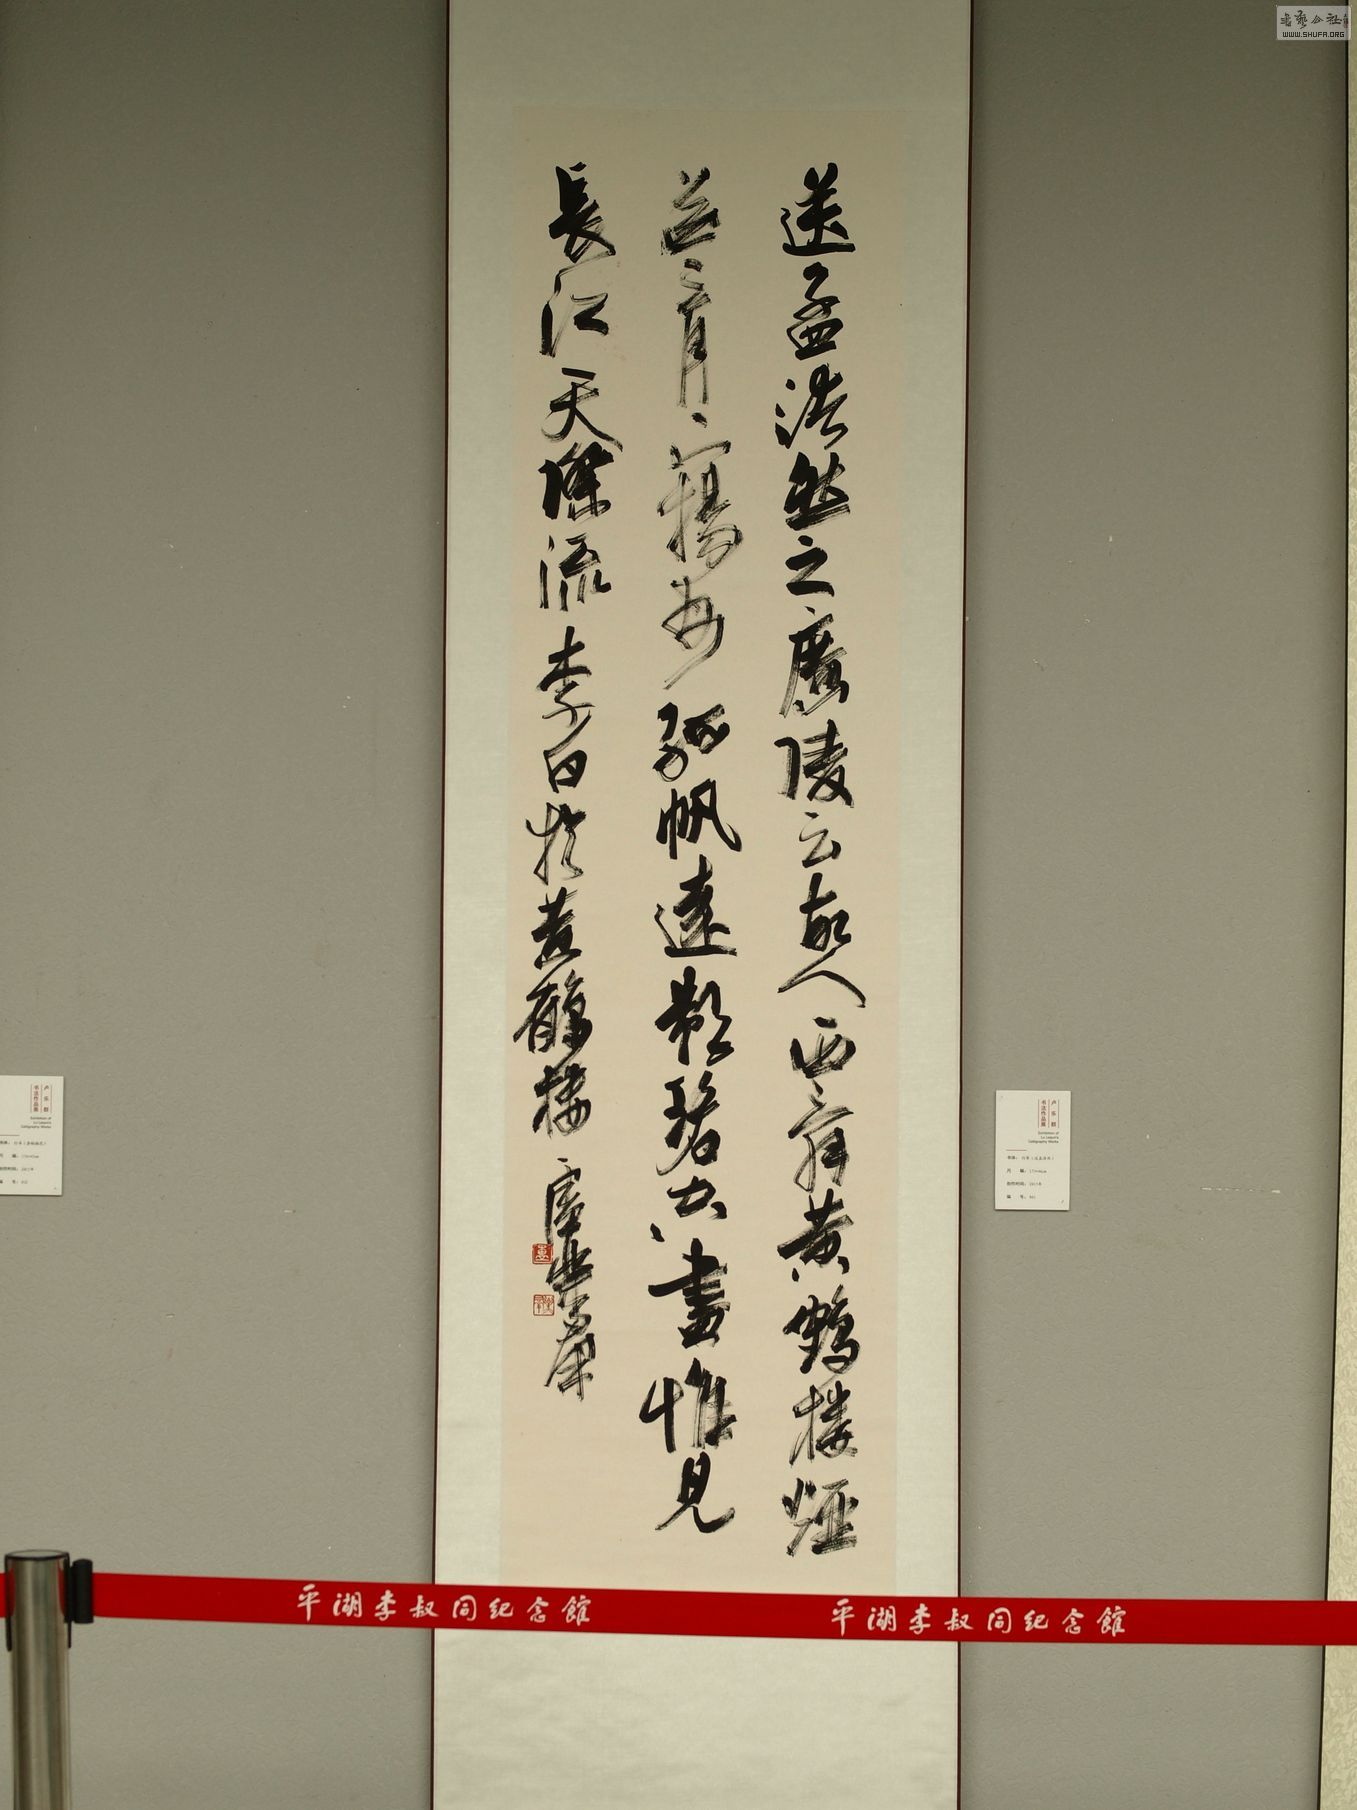 書藝公社
WWW.SHUFA.ORG
送孟浩然之廣陵云故人西辞黄鶴楼煙
花三月下揚州孤帆遠影碧空盡惟見
長江天際流李白於黄鶴楼盧樂群
卢乐群
书法作品展
Exhibition of
Lu Lequn's
Calligraphy Works
卢乐群
书法作品展
Exhibition of
Lu Lequn's
Calligraphy Works
平湖李叔同纪念館
平湖李叔同纪念館